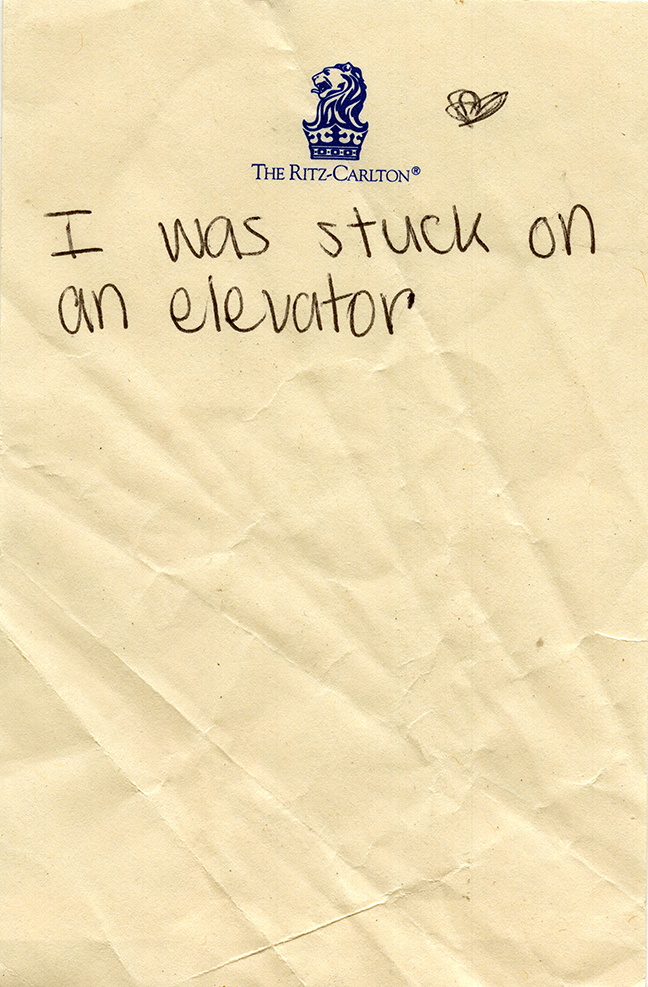 THE RITZ-CARLTON®
I was stuck on
an elevator